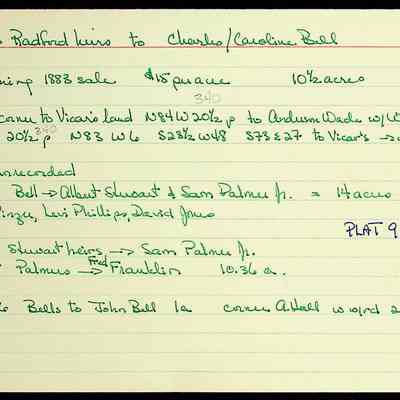 Radford heirs to Charles/Caroline Bell
1883 sale $15 per acre 10½ acres
340
corner to Vicar's land N84W 20½ p to Andrew Wade w/
20½ p 340 N83 W6 S23½ W48 S73 E27 to Vicar's →
unrecorded
Bell → Albert Stewart & Sam Palmer Jr. = 14 acres
Levi Phillips, David Jones
PLAT 9
Stewart heirs → Sam Palmer Jr.
Palmers → Fred Franklin 10.36 a.
Bells to John Bell 1a corner A. Hall w o/rd